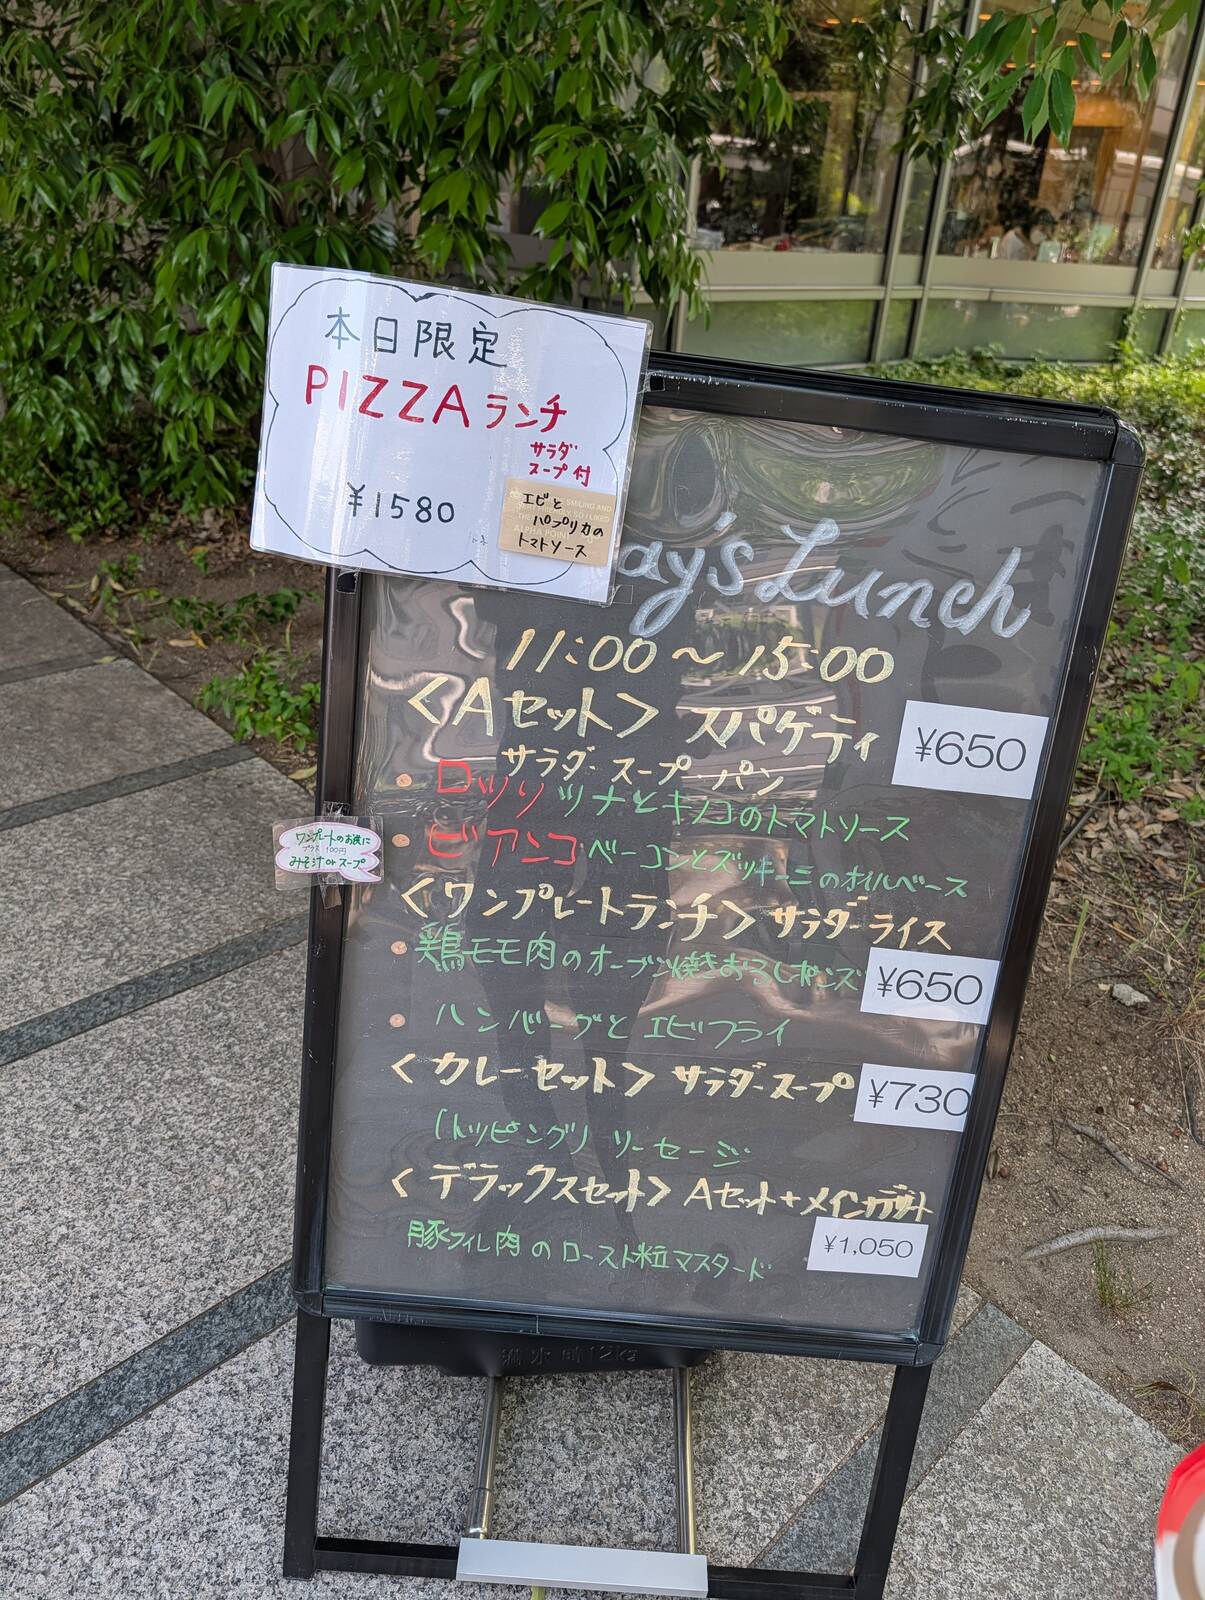 本日限定
PIZZAランチ
サラダ
スープ付
¥1580
エビと
パプリカの
トマトソース
ay's Lunch
11:00〜15:00
<Aセット> スパゲティ
¥650
サラダ・スープ・パン
・ロッソ ツナとキノコのトマトソース
・ビアンコ ベーコンとズッキーニのオイルベース
ワンプレートのお供に
プラス100円
みそ汁orスープ
<ワンプレートランチ> サラダ・ライス
・鶏モモ肉のオーブン焼きおろしポンズ
¥650
・ハンバーグとエビフライ
<カレーセット> サラダ・スープ
¥730
(トッピング) ソーセージ
<デラックスセット> Aセット+メイン
豚フィレ肉のロースト粒マスタード
¥1,050
満水時12kg